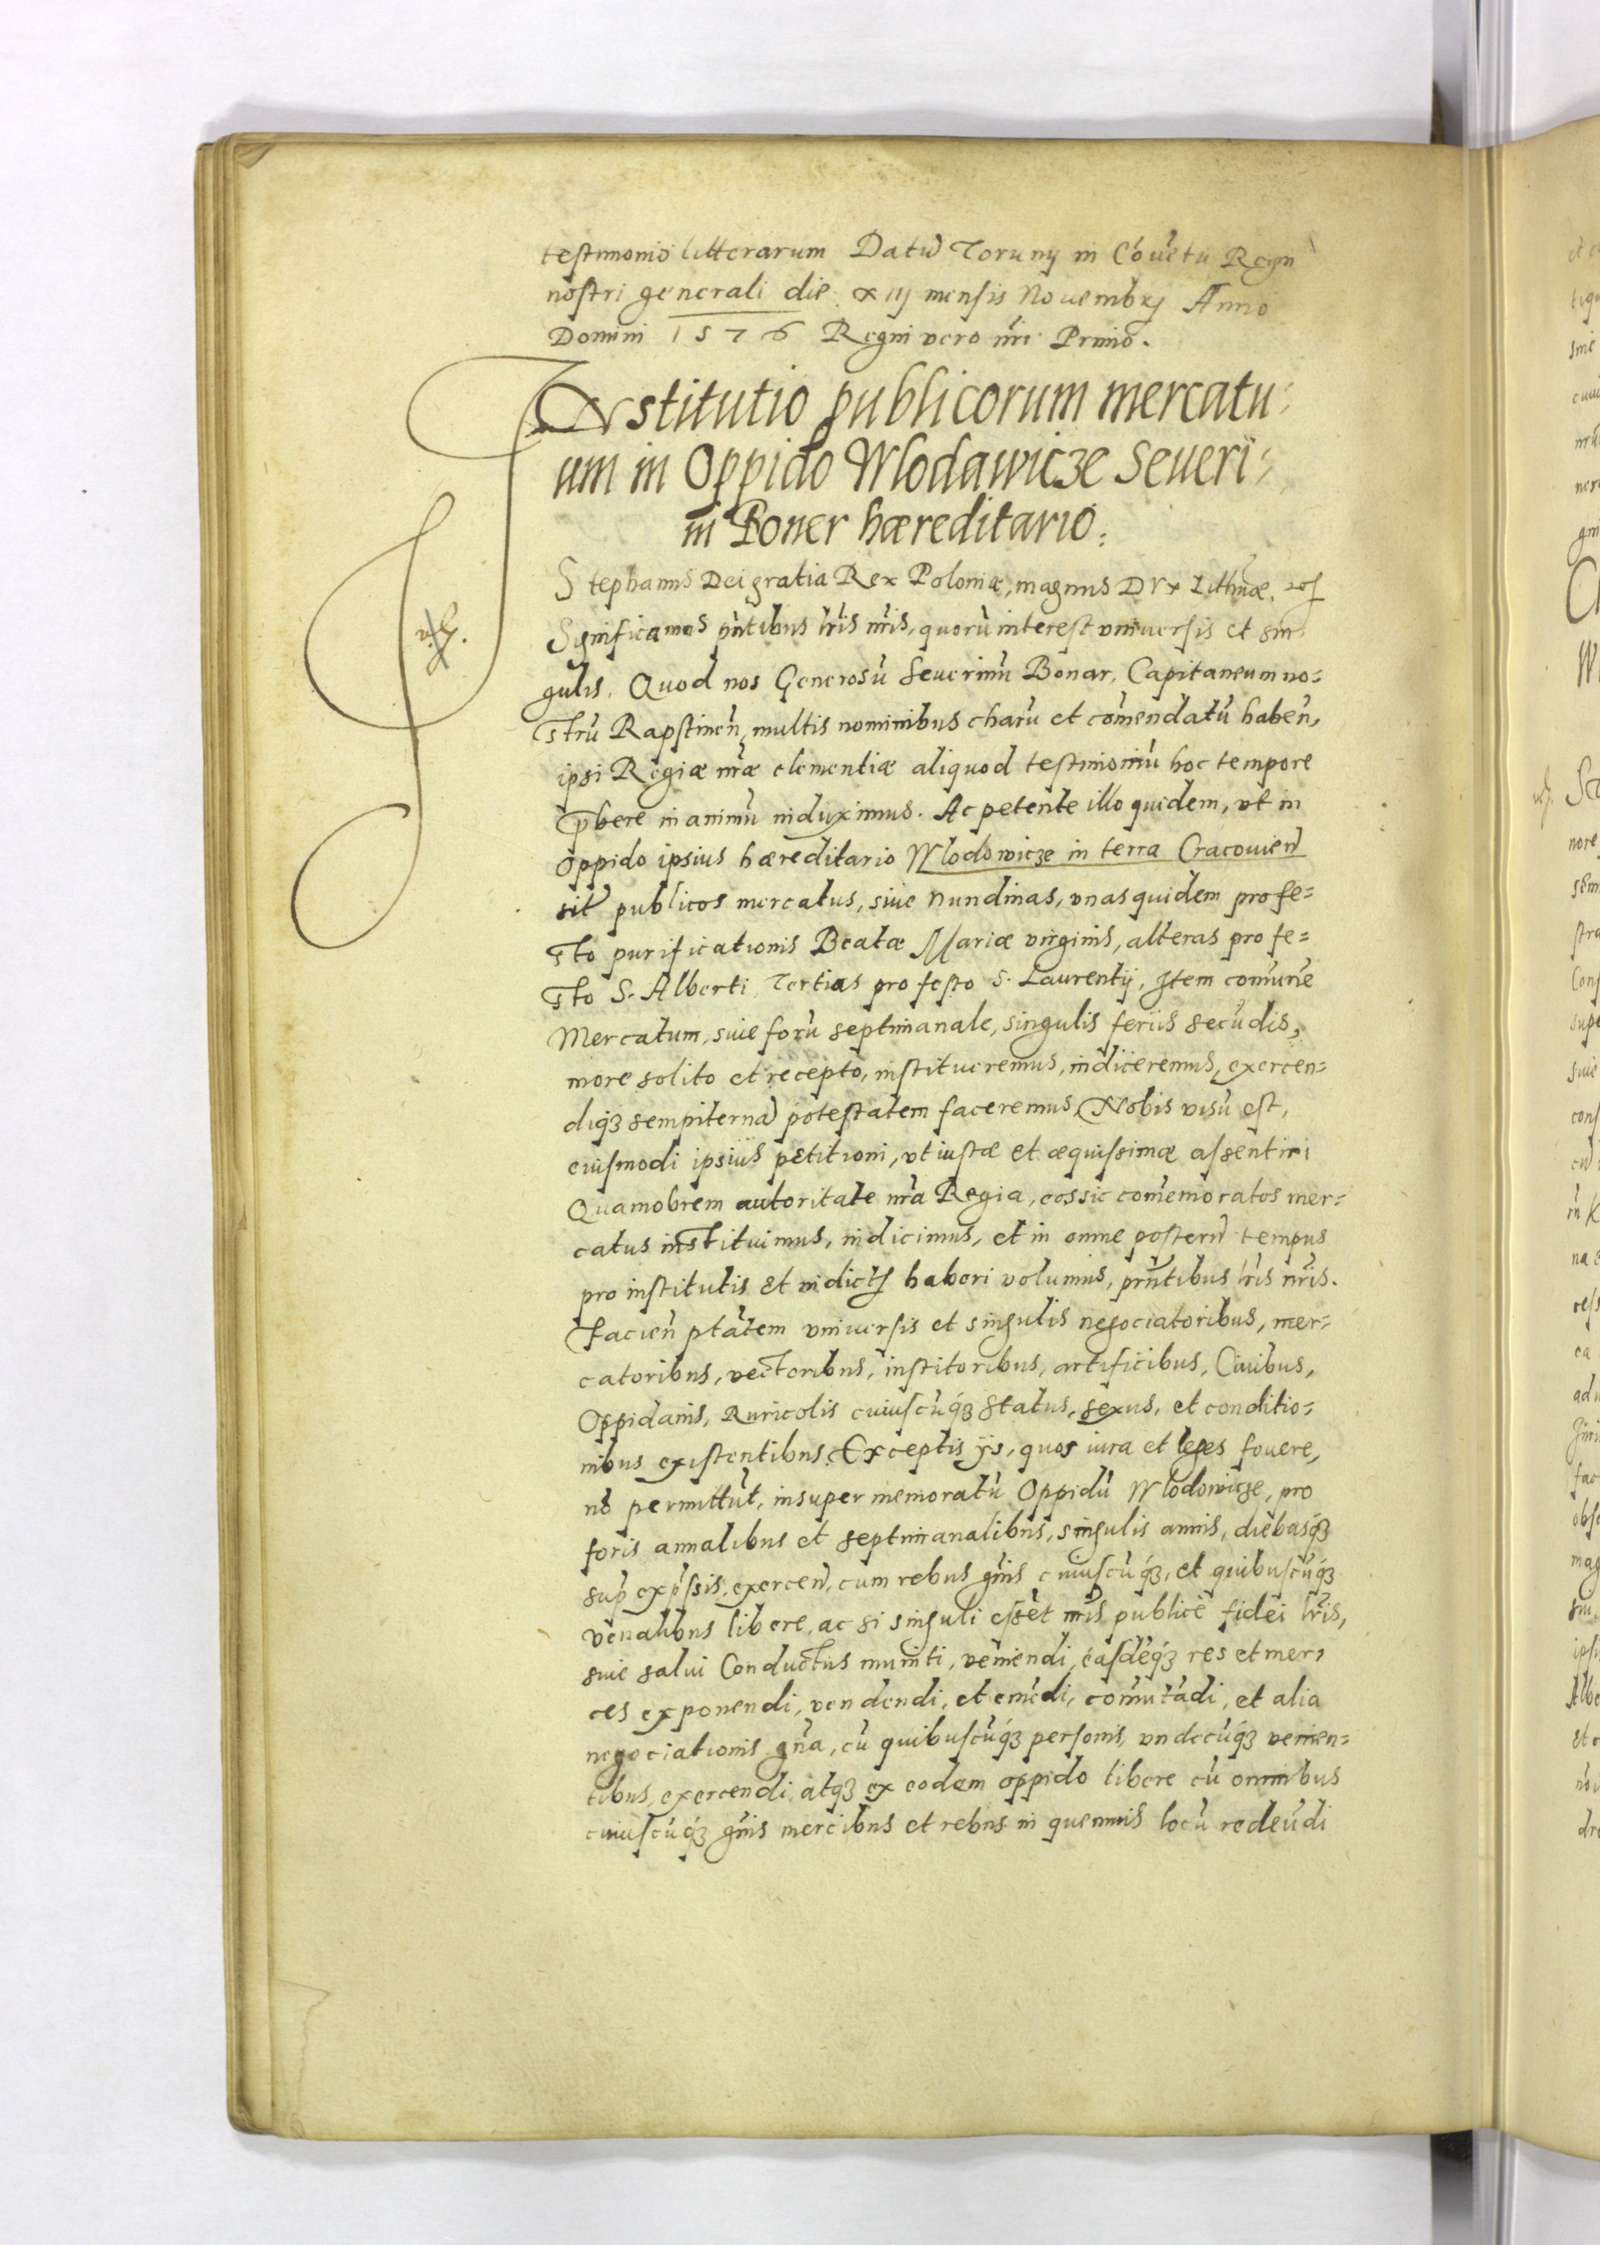 testimonio litterarum Datũ Toruny in Cõuetu Regni
nostri generali die xiij mensis Nouembrꝭ Anno
Domini 1576 Regni vero nr̃i Primo.
INstitutio publicorum mercatu⸗
um in Oppido Wlodawicze Seueri⸗
ni Poner hæreditario.
Stephanus Dei gratia Rex Poloniæ, magnus Dvx Lithuãæ. ꝛcꝭ
Significamus pñtibus lr̃is nr̃is, quorũ interest vniuersis et sin
gulis. Quod nos Generosũ Seuerinũ Bonar. Capitaneum no⸗
strũ Rapstineñ, multis nominibus charũ et cõmendatũ habeñ,
ipsi Regiæ nr̃æ clementiæ aliquod testimoniũ hoc tempore
p̃bere in animũ induximus. Ac petente illo quidem, vt in
oppido ipsius hæreditario Wlodowicze in terra Cracouieñ
sit publicos mercatus, siue nundinas, vnas quidem pro fe⸗
sto purificationis Beatæ Mariæ virginis, alteras pro fe⸗
sto S. Alberti Tertias pro festo S. Laurentij, Item comũne
Mercatum, siue forũ septimanale, singulis feriis secũdis,
more solito et recepto, institueremus, indiceremus, exercen⸗
diqꝫ sempiternã potestatem faceremus, Nobis visũ est,
eiusmodi ipsius petitioni, vt iustæ et æquissimæ assentiri
Quamobrem autoritate nr̃a Regia, eos sic comẽmoratos mer⸗
catus instituimus, indicimus, et in omne posterũ tempus
pro institutis et indictꝭ haberi volumus, prñtibus lr̃is nr̃is.
Facieñ ptãtem vniuersis et singulis negociatoribus, mer⸗
catoribus, vectoribus, institoribus, artificibus, Ciuibus,
Oppidanis, Ruricolis cuiuscũqꝫ status, sexus, et conditio⸗
nibus existentibus. Exceptis ijs, quos iura et leges fouere,
nõ permittũt, insuper memoratũ Oppidũ Wlodowicze, pro
foris annalibus et septimanalibus, singulis annis, diebusqꝫ
sup̃ exp̃ssis, exerceñ, cum rebus gñis cuiuscũqꝫ, et quibuscũqꝫ
venalibus libere, ac si singuli essẽt nr̃is publicè fidei lr̃is,
siue salui Conductus muniti, veniendi, easdẽqꝫ res et mer⸗
ces exponendi, vendendi, et emẽdi, com̃utãdi, et alia
negociationis gñra, cũ quibuscũqꝫ personis, vndecũqꝫ venien⸗
tibus, exercendi, atqꝫ ex eodem oppido libere cũ omnibus
cuiuscũqꝫ gñis mercibus et rebus in quemuis locũ redeũdi